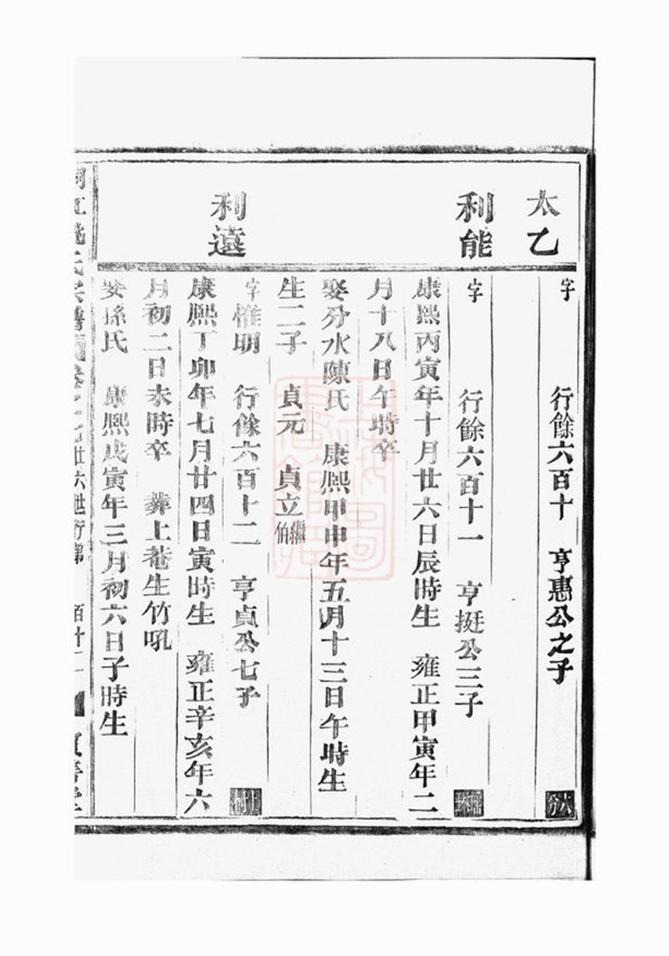 太乙
字　行餘六百十　亨惠公之子
利能
字　行餘六百十一　亨挺公三子
康熙丙寅年十月廿六日辰時生　雍正甲寅年二
月十八日午時卒
娶分水陳氏　康熙甲申年五月十三日午時生
生二子　貞元　貞立繼伯
利遠
字惟明　行餘六百十二　亨貞公七子
康熙丁卯年七月廿四日寅時生　雍正辛亥年六
月初二日未時卒　葬上菴生竹吼
娶孫氏　康熙戊寅年三月初六日子時生
氏宗譜　廿六世行第　百十二